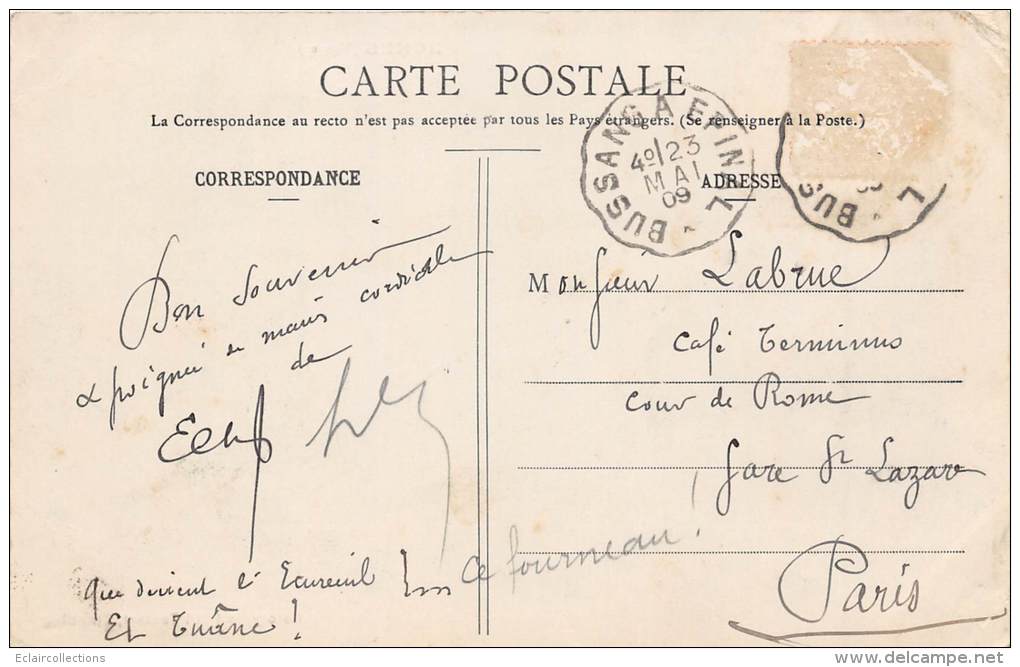 CARTE POSTALE
La Correspondance au recto n'est pas acceptée par tous les Pays étrangers. (Se renseigner à la Poste.)
CORRESPONDANCE
ADRESSE
BUSSANG A EPINAL
4º/23
MAI
09
BUS
L
09
Bon Souvenir
& poignée de mains cordiale
de
que devient l'Ecureuil
Et
!
ce fourneau !
Monsieur Labrue
Café Terminus
Cour de Rome
Gare St Lazare
Paris
Eclaircollections
www.delcampe.net